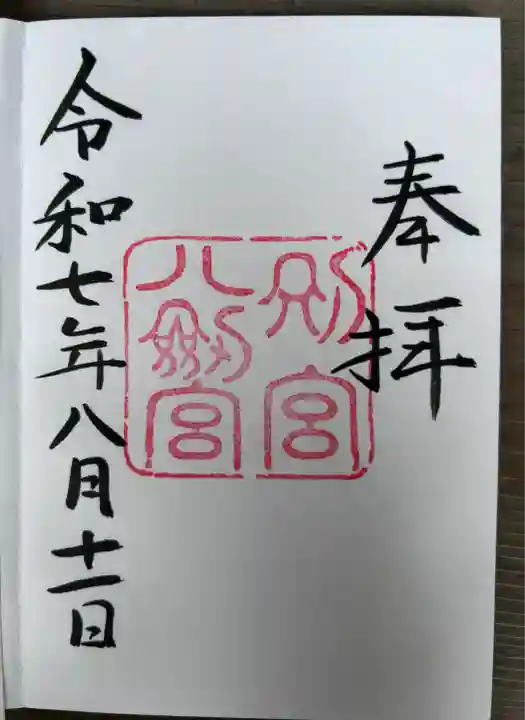 奉拝
別宮
八剱宮
令和七年八月十一日